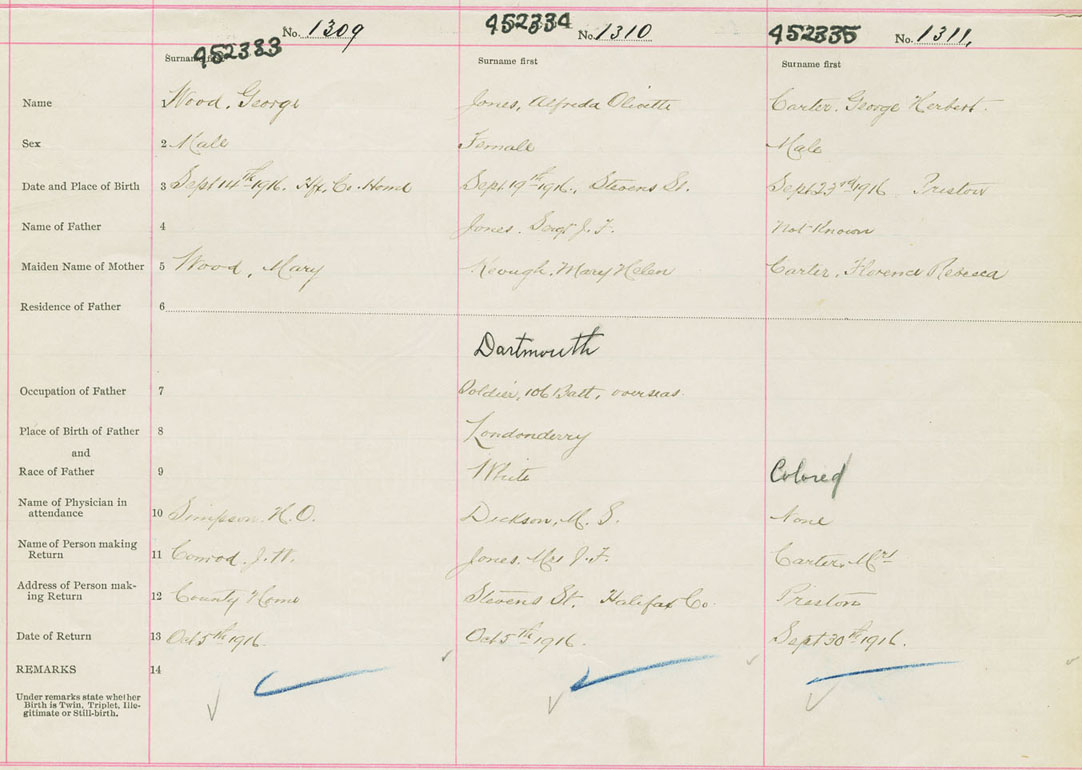 No. 1309 452334 No. 1310 452335 No. 1311,
452333
Surname first Surname first Surname first
Name 1 Wood, George Jones, Alfreda Olivette Carter, George Herbert.
Sex 2 Male Female Male
Date and Place of Birth 3 Sept 14th 1916. Hfx. Co. Home Sept 19th 1916., Stevens St. Sept 23rd 1916 Preston
Name of Father 4 Jones. Sergt J. F. Not Known
Maiden Name of Mother 5 Wood, Mary Keough, Mary Helen Carter, Florence Rebecca
Residence of Father 6
Dartmouth
Occupation of Father 7 Soldier, 106 Batt, overseas.
Place of Birth of Father 8 Londonderry
and
Race of Father 9 White Colored
Name of Physician in
attendance 10 Simpson. H.O. Dickson, M. S. None
Name of Person making
Return 11 Conrod, J. W. Jones, Mrs J. F. Carter, Mrs
Address of Person mak-
ing Return 12 County Home Stevens St. Halifax Co. Preston
Date of Return 13 Oct 5th 1916. Oct 5th 1916. Sept 30th 1916.
REMARKS 14
Under remarks state whether
Birth is Twin, Triplet, Ille-
gitimate or Still-birth.